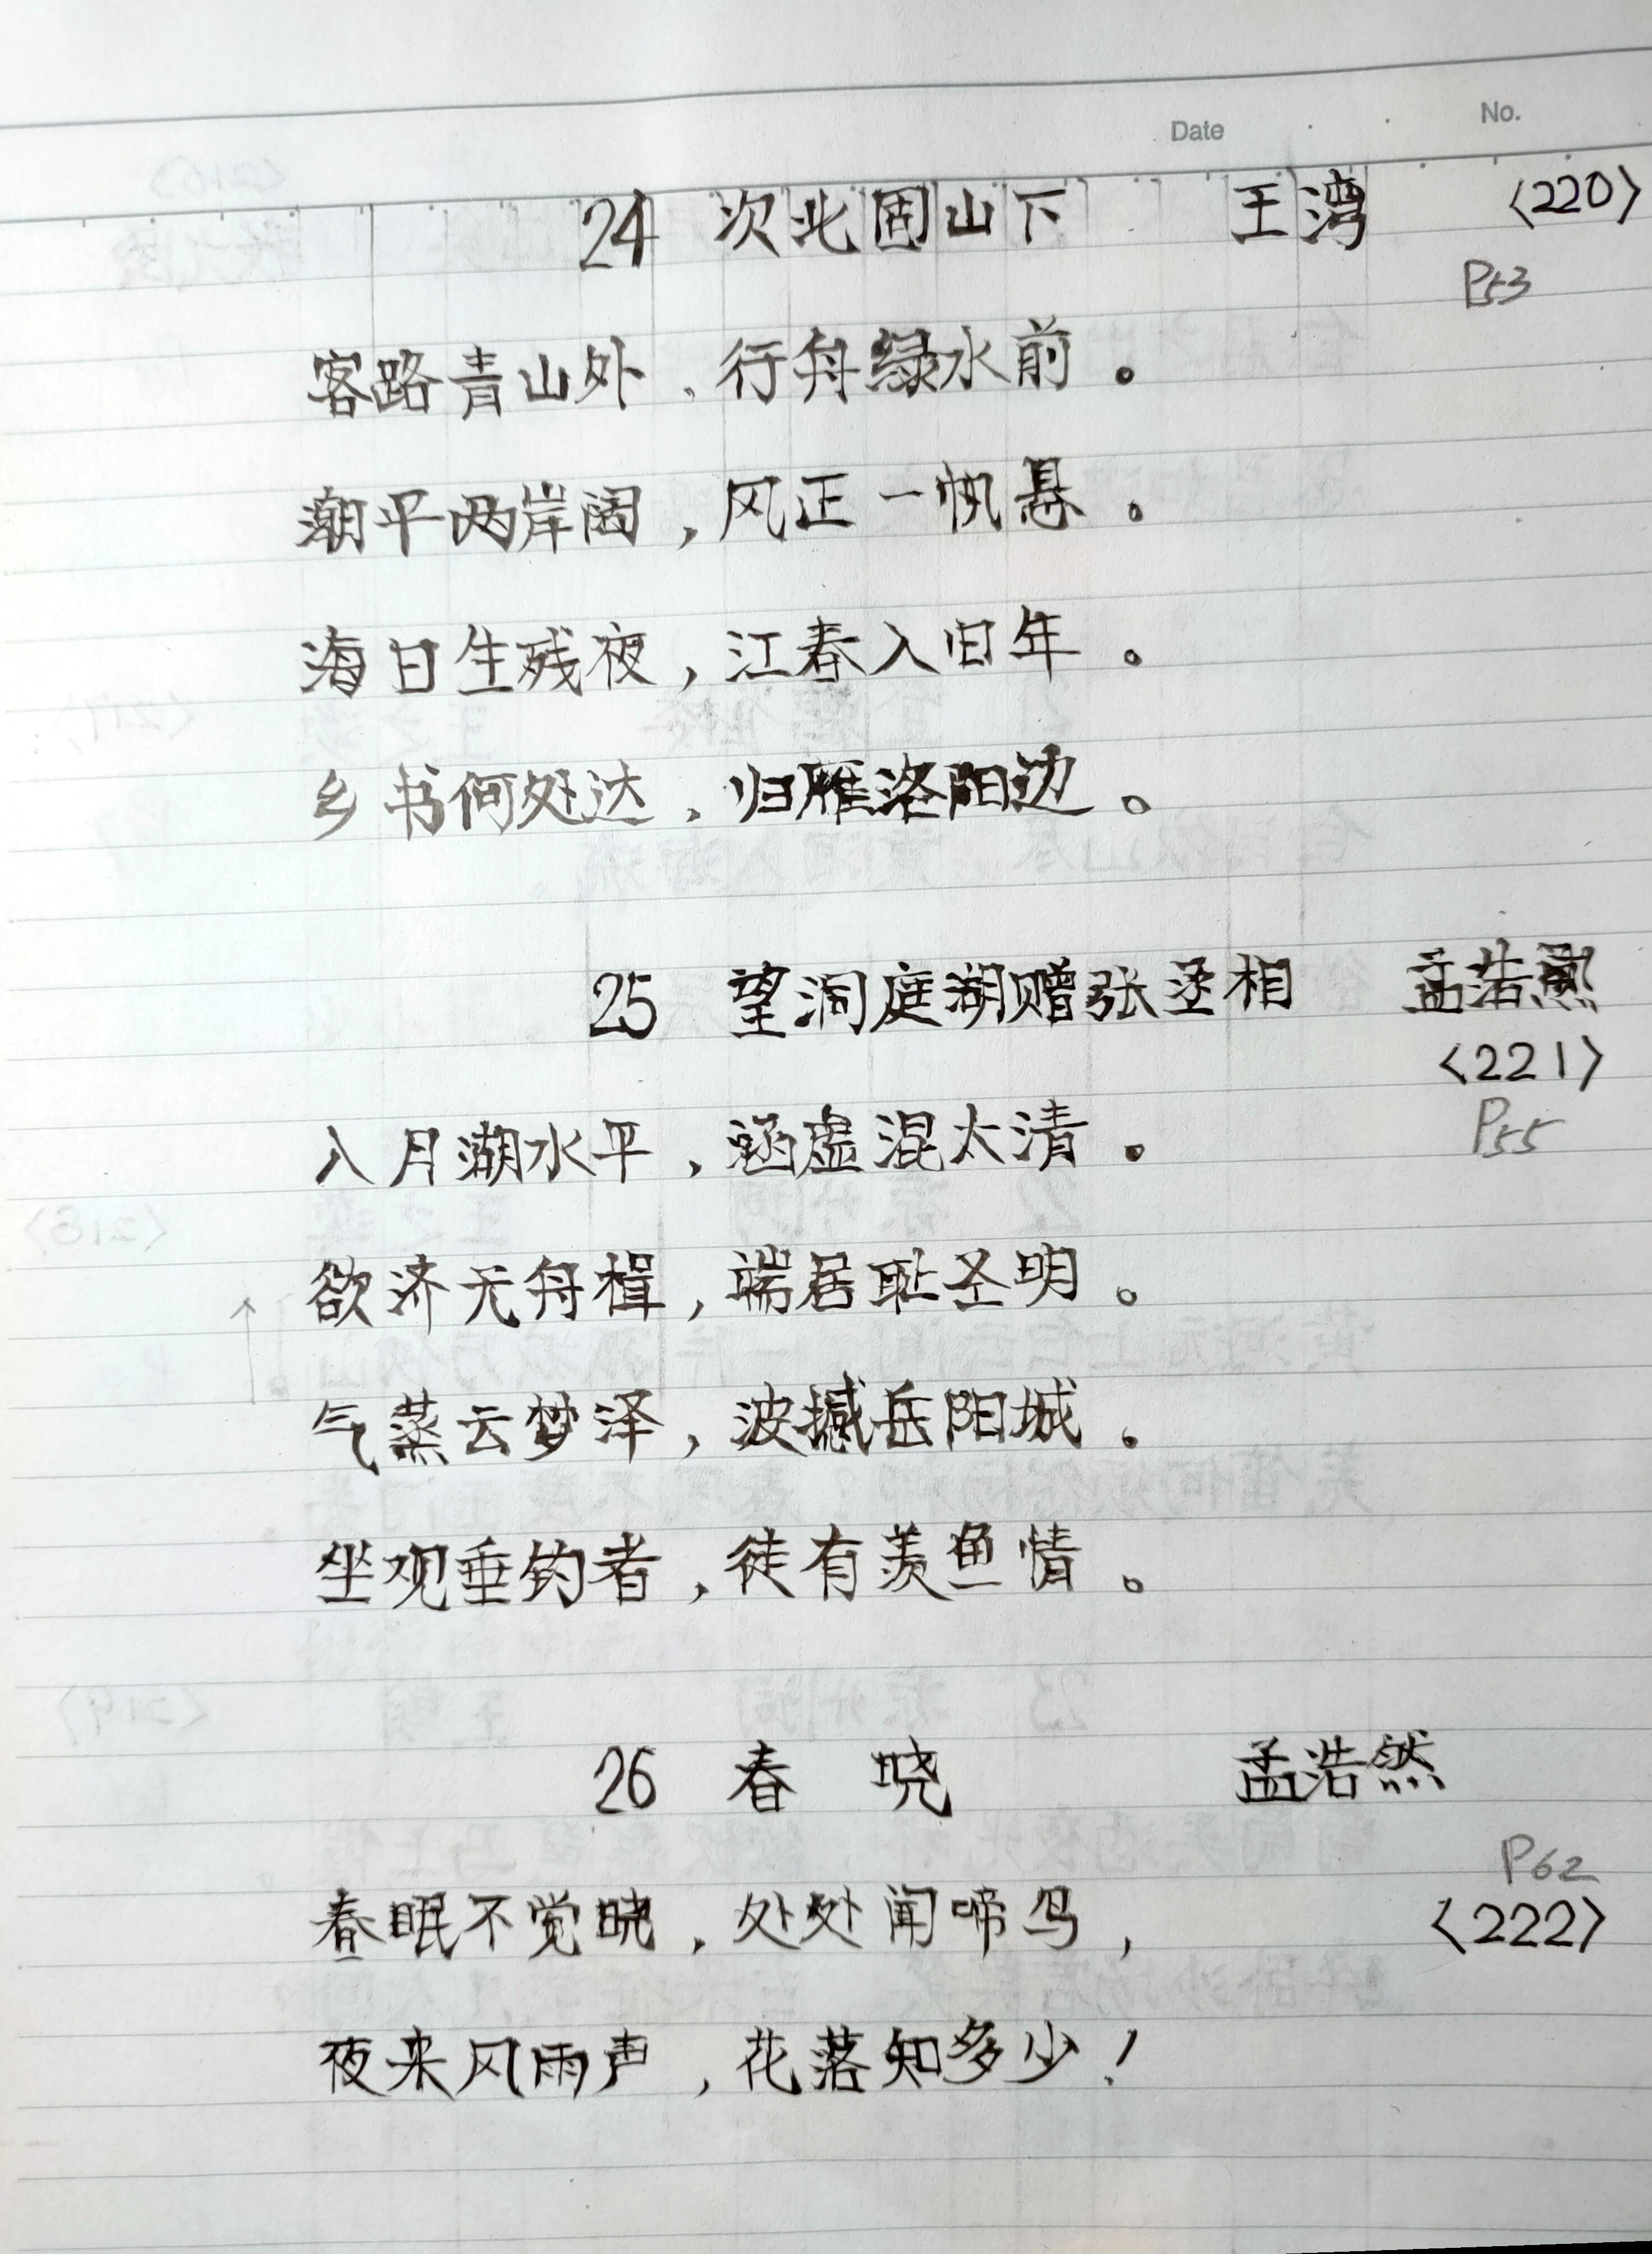 Date No.
24 次北固山下 王湾 〈220〉
P53
客路青山外，行舟绿水前。
潮平两岸阔，风正一帆悬。
海日生残夜，江春入旧年。
乡书何处达，归雁洛阳边。
25 望洞庭湖赠张丞相 孟浩然
〈221〉
P55
八月湖水平，涵虚混太清。
欲济无舟楫，端居耻圣明。
气蒸云梦泽，波撼岳阳城。
坐观垂钓者，徒有羡鱼情。
26 春 晓 孟浩然
P62
春眠不觉晓，处处闻啼鸟，
〈222〉
夜来风雨声，花落知多少！